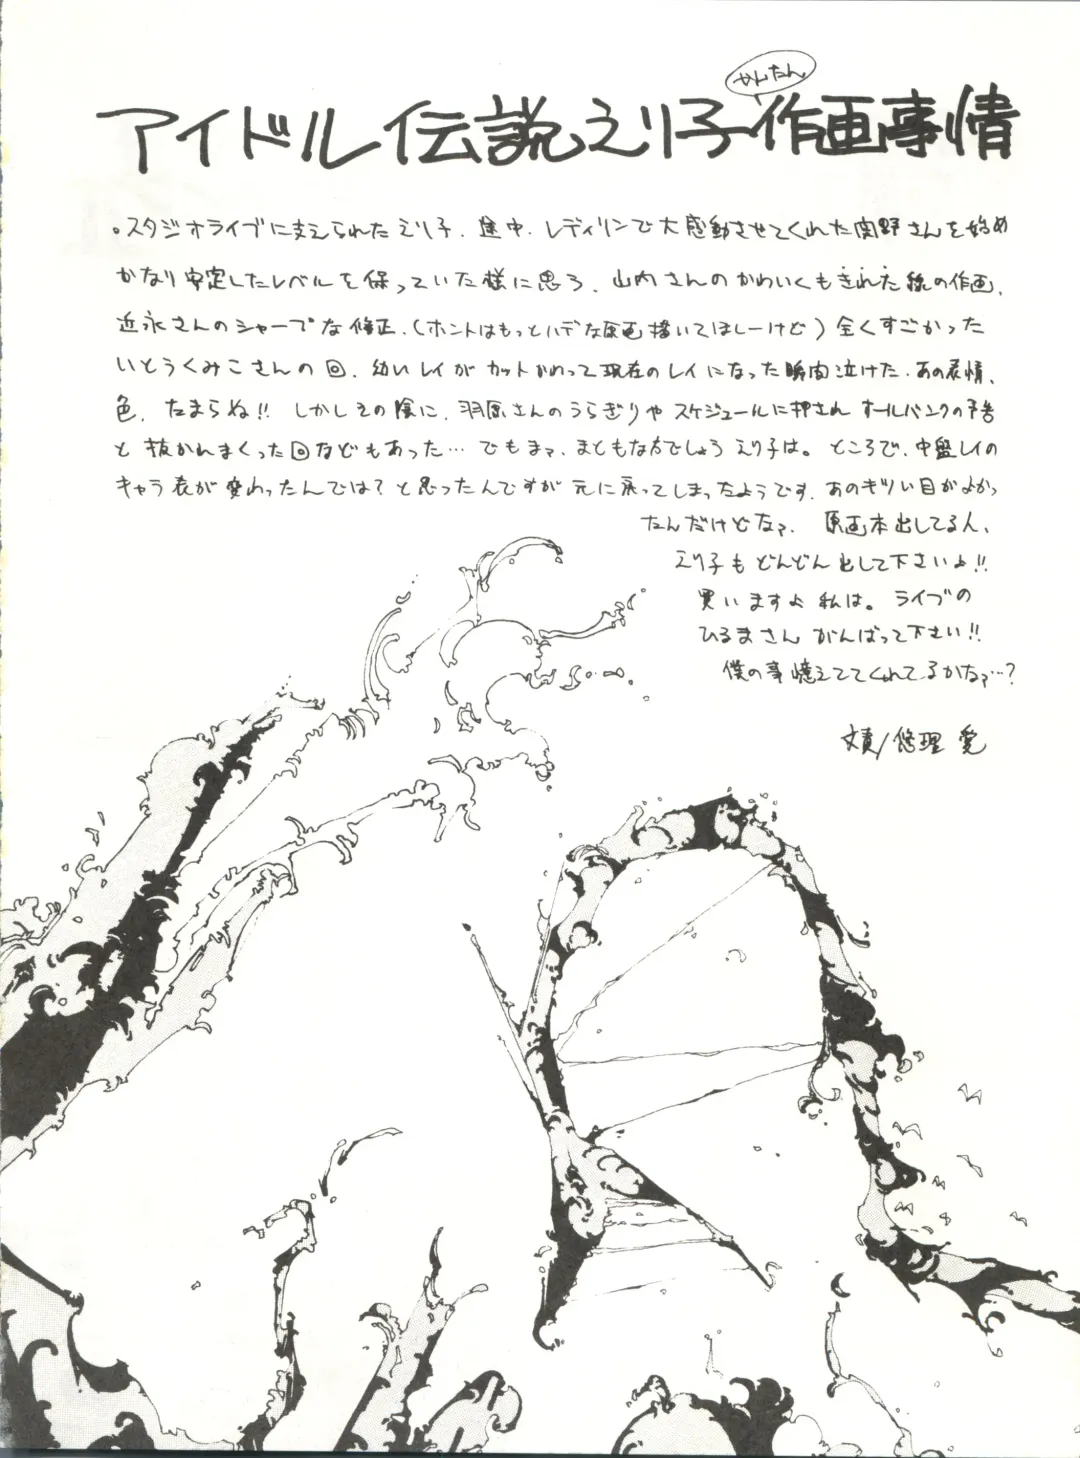 かんたん
アイドル伝説えり子作画事情
。スタジオライブに支えられたえり子、途中、レディリンで大感動させてくれた関野さんを始め
かなり安定したレベルを保っていた様に思う、山内さんのかわいくもきれた線の作画、
近永さんのシャープな修正、(ホントはもっとハデな原画描いてほしーけど)全くすごかった
いとうくみこさんの回、幼いレイがカットかわって現在のレイになった瞬間泣けた、あの表情、
色、たまらね!! しかしその陰に、羽原さんのうらぎりやスケジュールに押されオールバンクの予告
と抜かれまくった回などもあった… でもまァ、まともな方でしょうえり子は。ところで、中盤レイの
キャラ表が変わったんでは?と思ったんですが元に戻ってしまったようです、あのギリい目がよかっ
たんだけどなァ、 原画本出してる人、
えり子もどんどん出して下さいよ!!
買いますよ私は。ライブの
ひるまさんがんばって下さい!!
僕の事憶えててくれてるかなァ…?
文責/悠理 愛